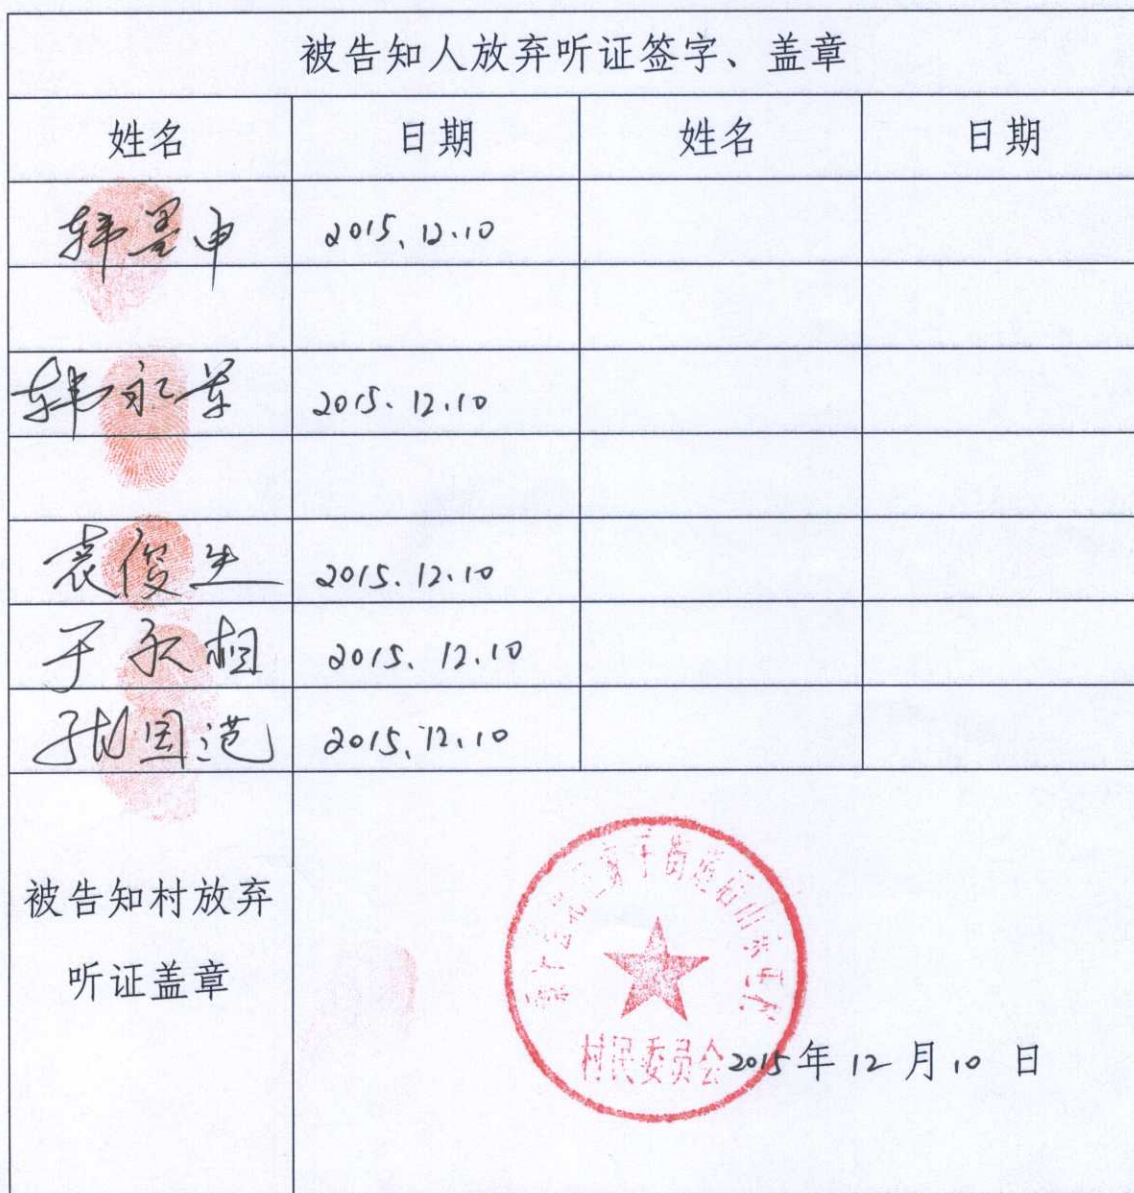 被告知人放弃听证签字、盖章
姓名 日期 姓名 日期
韩墨申 2015.12.10
韩永军 2015.12.10
袁俊生 2015.12.10
于永相 2015.12.10
张国范 2015.12.10
被告知村放弃
听证盖章
村民委员会
2015年12月10日